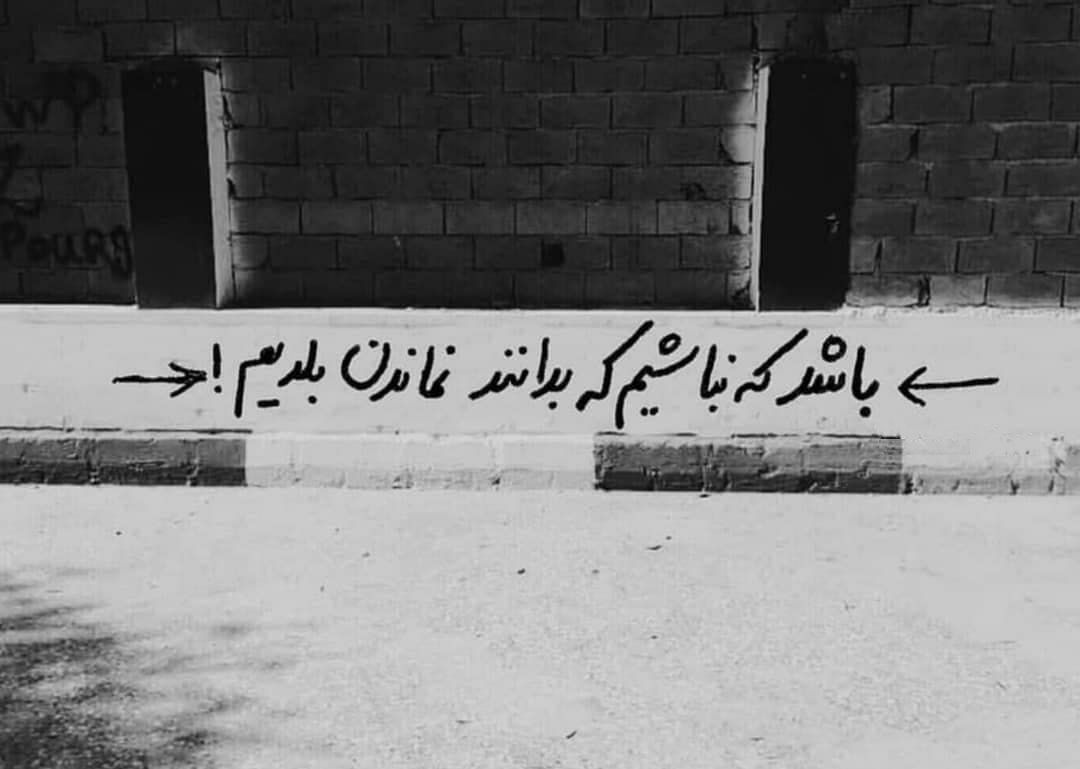 باشد که نباشیم که بدانند نماندن بلدیم !
WP
Pourg